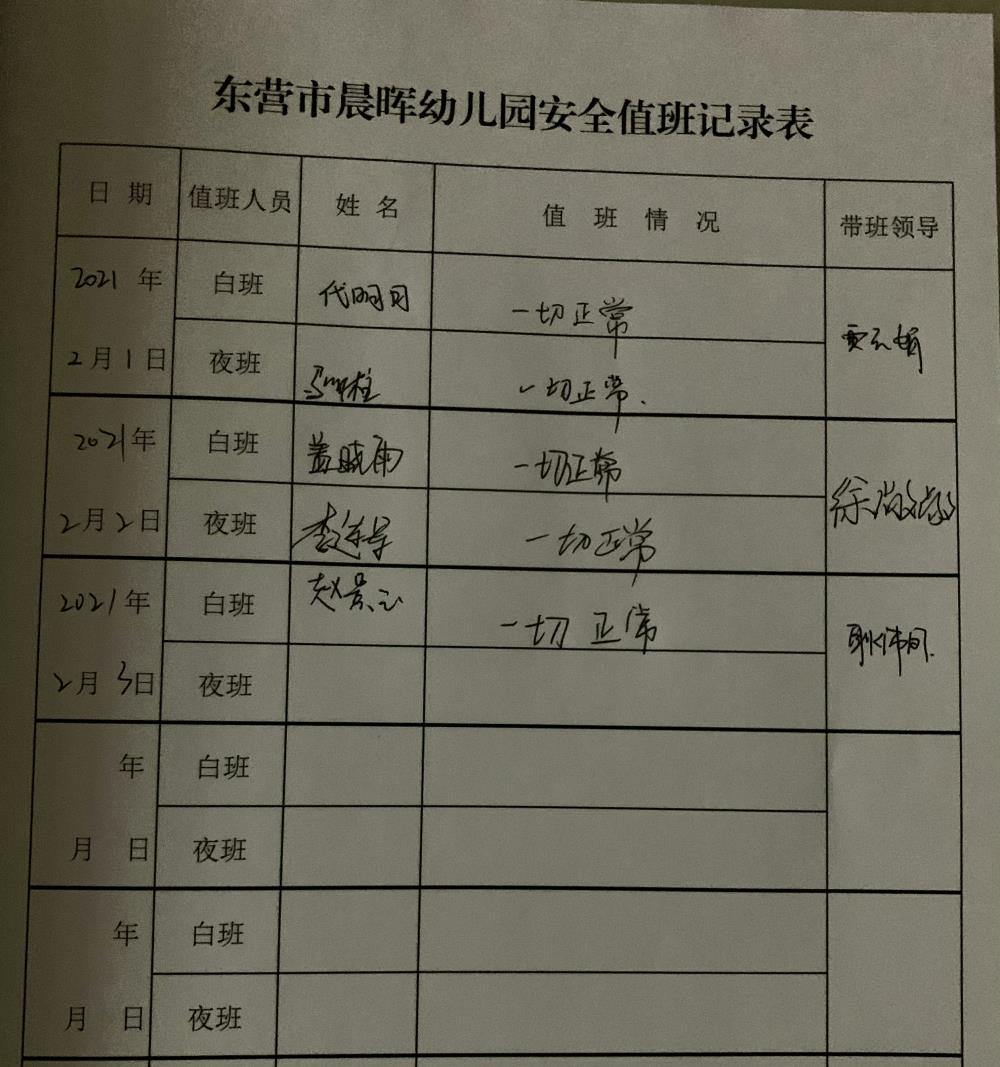 东营市晨晖幼儿园安全值班记录表
日期 值班人员 姓名 值班情况 带班领导
2021年 白班 代明月 一切正常
2月1日 夜班 一切正常.
2021年 白班 盖晓雨 一切正常
2月2日 夜班 一切正常 徐
2021年 白班 赵景 一切正常
2月3日 夜班 耿伟
年 白班
月 日 夜班
年 白班
月 日 夜班